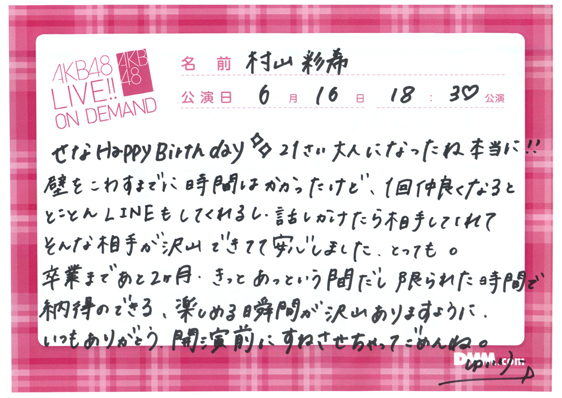 AKB48
LIVE!!
ON DEMAND
AKB
48
名前 村山彩希
公演日 6月16日 18:30公演
せなHappy Birthday 21さい大人になったね本当に!!
壁をこわすまでに時間はかかったけど、1回仲良くなると
とことんLINEもしてくれるし、話しかけたら相手してくれて
そんな相手が沢山できてて安心しました、とっても。
卒業まであと2ヶ月、きっとあっという間だし限られた時間で
納得のできる、楽しめる瞬間が沢山ありますように、
いつもありがとう、開演前にすねさせちゃってごめんね。
DMM.com